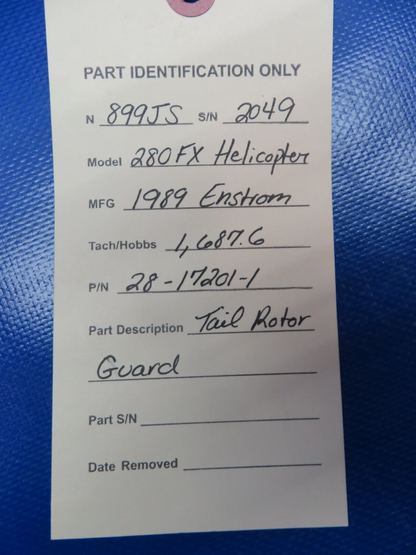 PART IDENTIFICATION ONLY
N 899JS S/N 2049
Model 280FX Helicopter
MFG 1989 Enstrom
Tach/Hobbs 1,687.6
P/N 28-17201-1
Part Description Tail Rotor
Guard
Part S/N
Date Removed